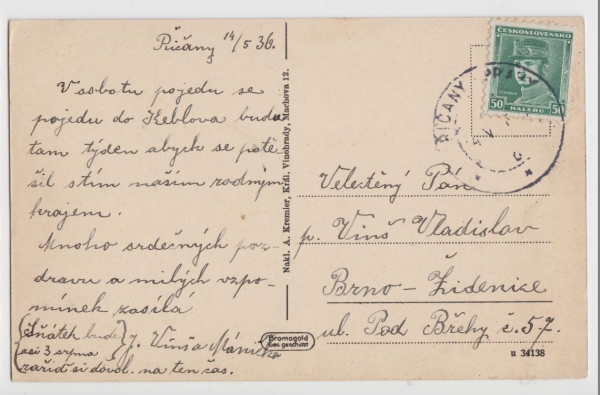 Říčany 14/5 36.
V sobotu pojedu se
pojedu do Keblova budu
tam týden abych se potě
šil s tím naším rodným
krajem.
Mnoho srdečných poz-
dravu a milých vzpo-
mínek zasílá
J. Vinša
(Sňátek bude
asi 3 srpna
zařiď si dovol. na ten čas.
Nakl. A. Kremler, Král. Vinohrady, Machova 12.
ČESKOSLOVENSKO
50 HALÉŘŮ 50
ŘÍČANY PRAHY
Velectěný Pán
p. Vinš Vladislav
Brno - Židenice
ul. Pod Břehy č. 57.
Bromogold
Ges. geschützt
u 34138